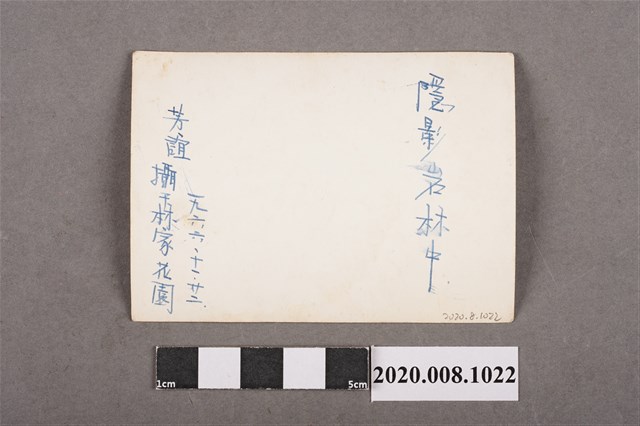 隱影岩林中
一九六六.十一.廿二.
芳誼攝于林家花園
2020.8.1022
1cm
5cm
2020.008.1022